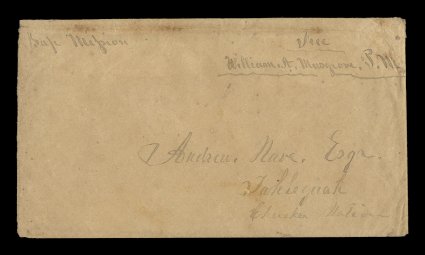 Bap Mission
Free
William A. Musgrove. P.M.
Andrew. Nave. Esqr.
Tahlequah
Cherokee Nation